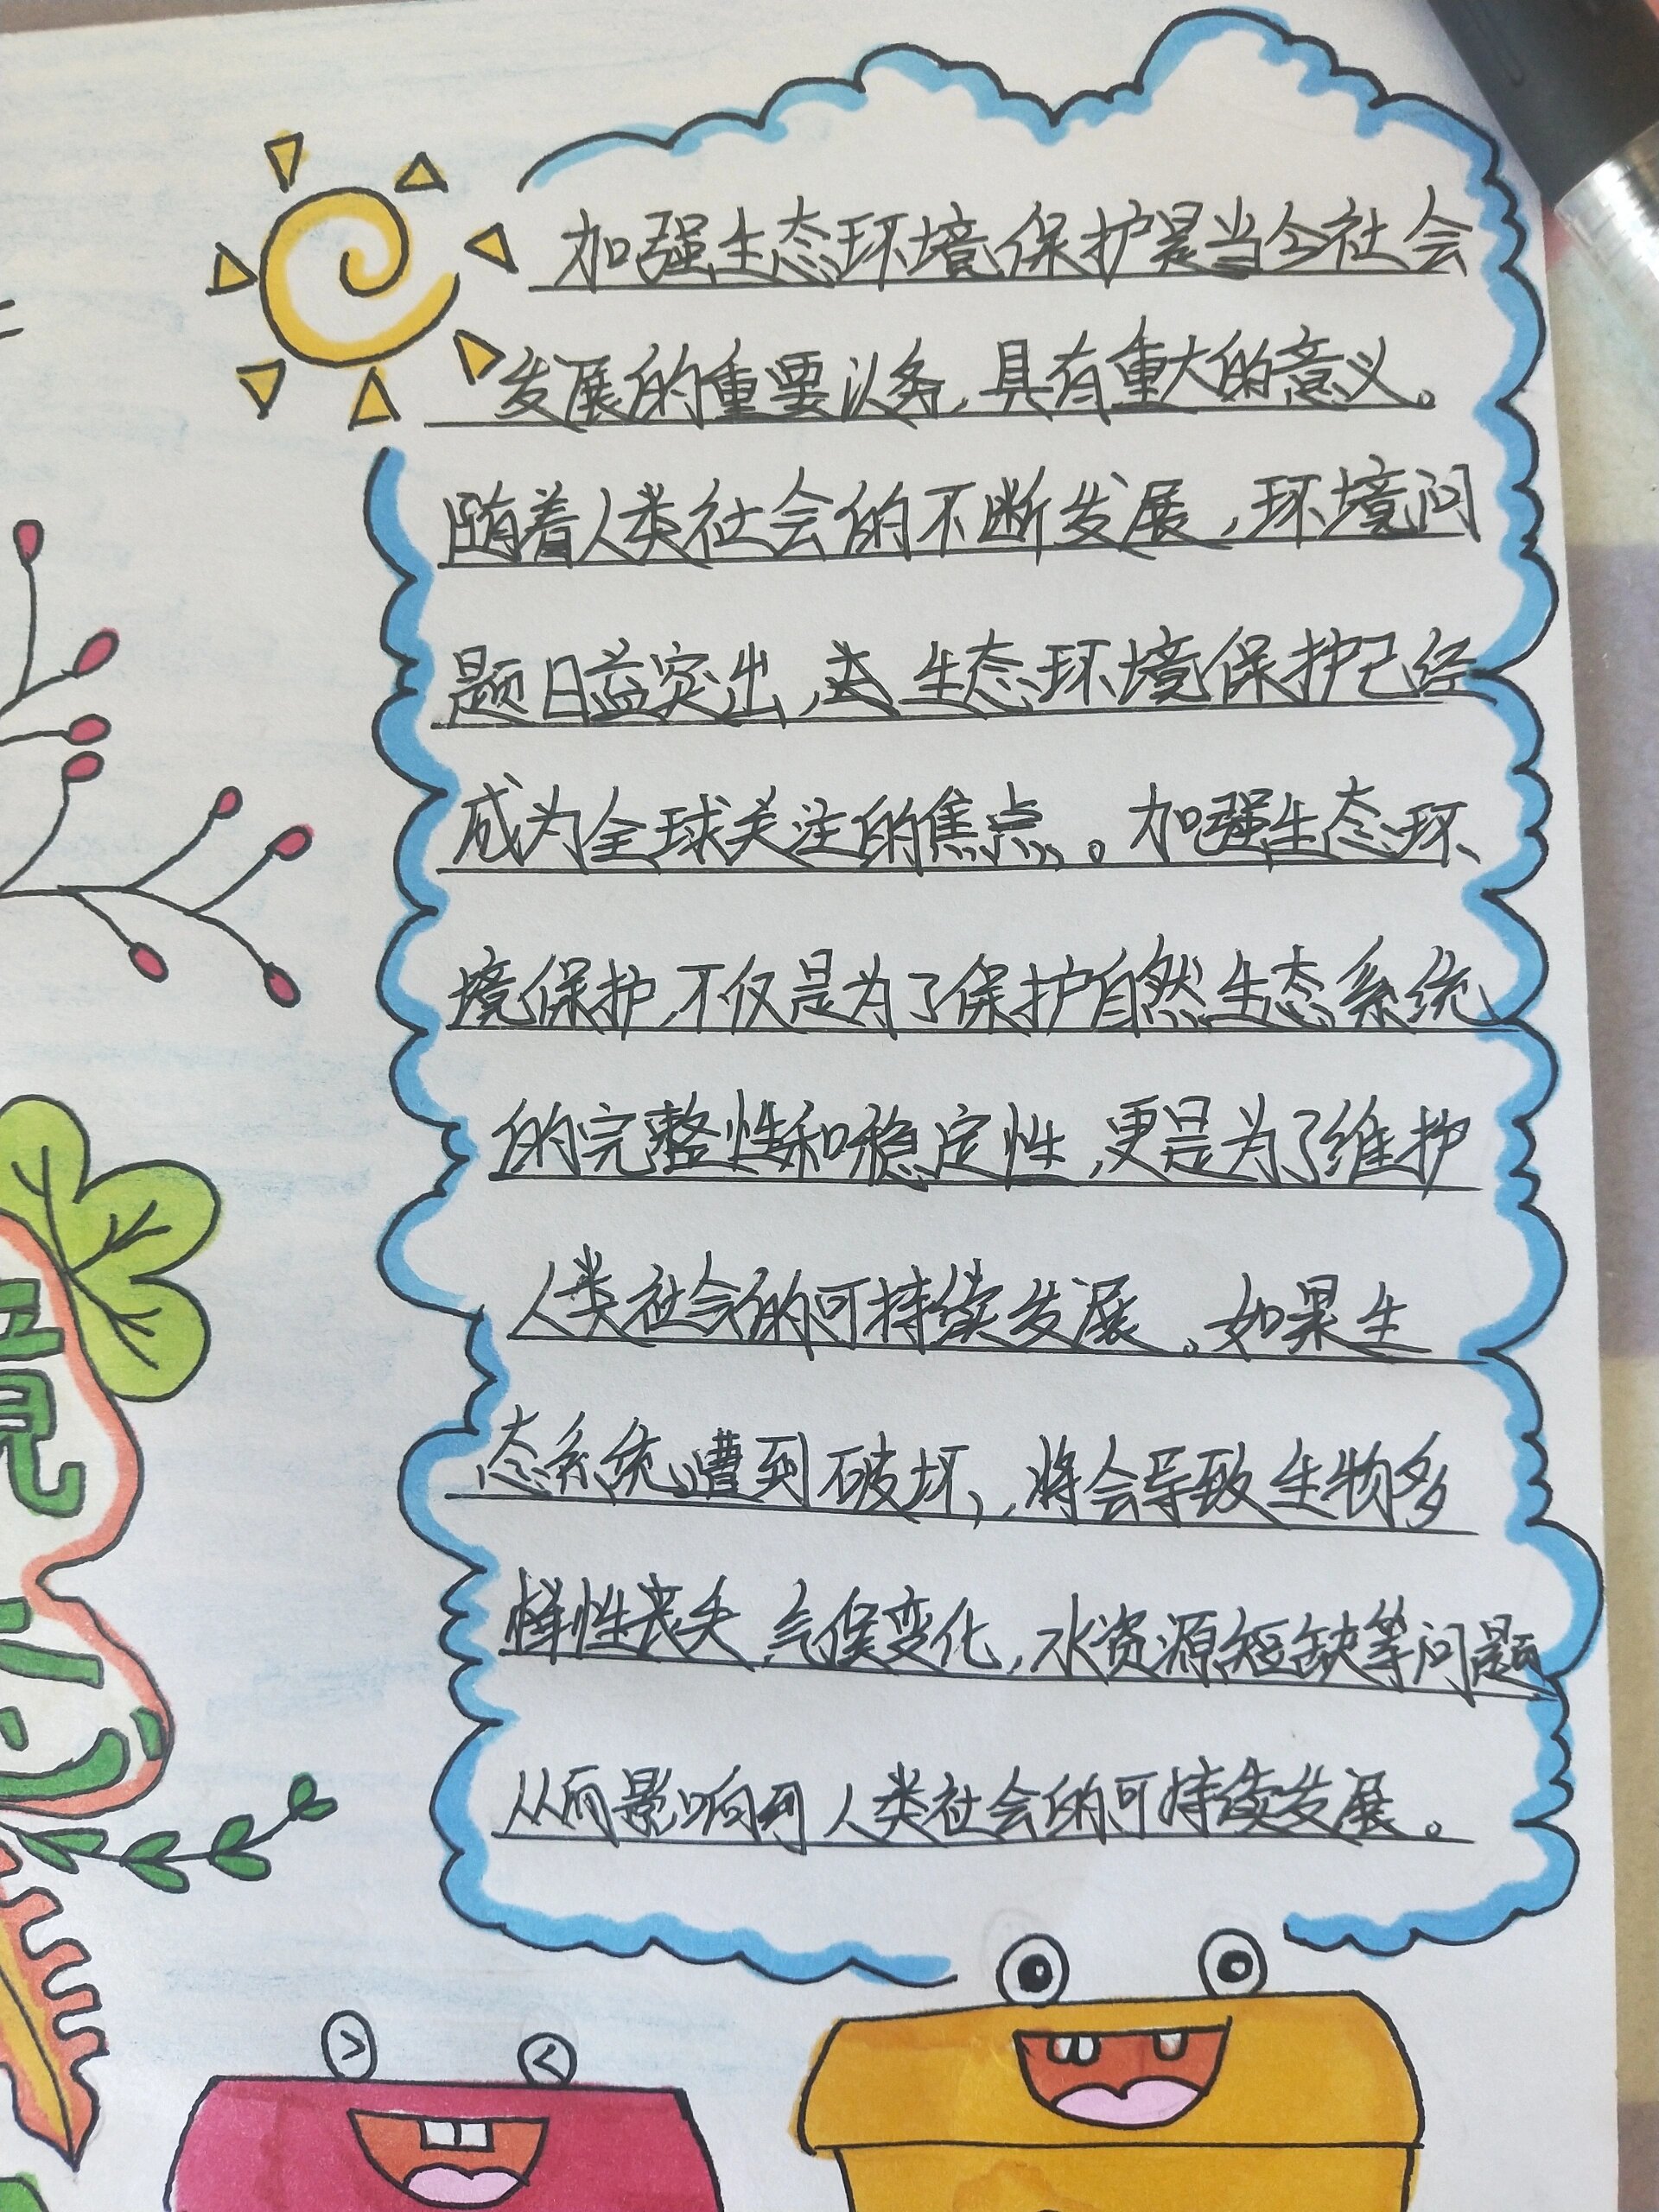 加强生态环境保护是当今社会
发展的重要议务,具有重大的意义。
随着人类社会的不断发展,环境问
题日益突出,生态环境保护已经
成为全球关注的焦点。加强生态环
境保护,不仅是为了保护自然生态系统
的完整性和稳定性,更是为了维护
人类社会的可持续发展。如果生
态系统遭到破坏,将会导致生物多
样性丧失 气候变化,水资源短缺等问题
从而影响到人类社会的可持续发展。